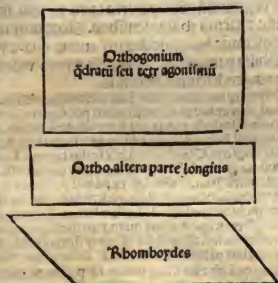 Orthogonium
q̄dratū seu tetragonismū
Ortho. altera parte longius
Rhomboydes